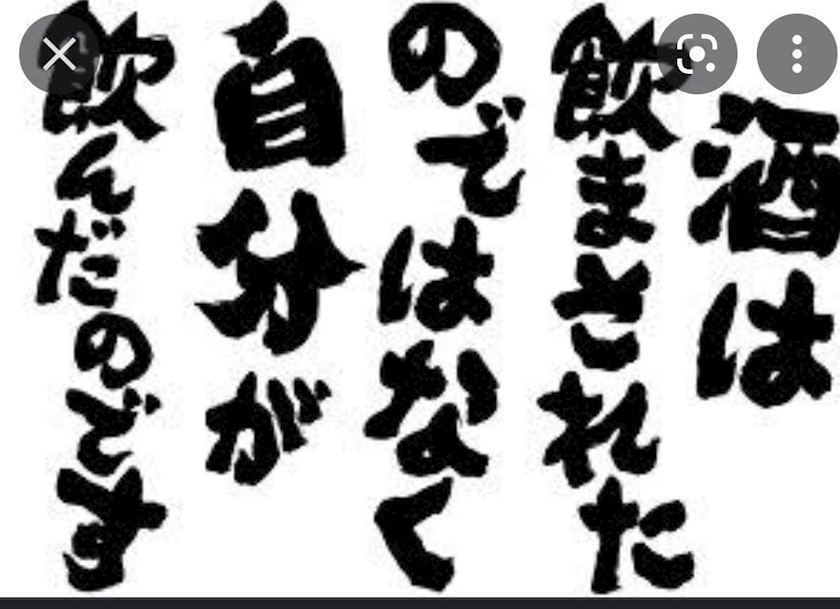 酒は
飲まされた
のではなく
自分が
飲んだのです